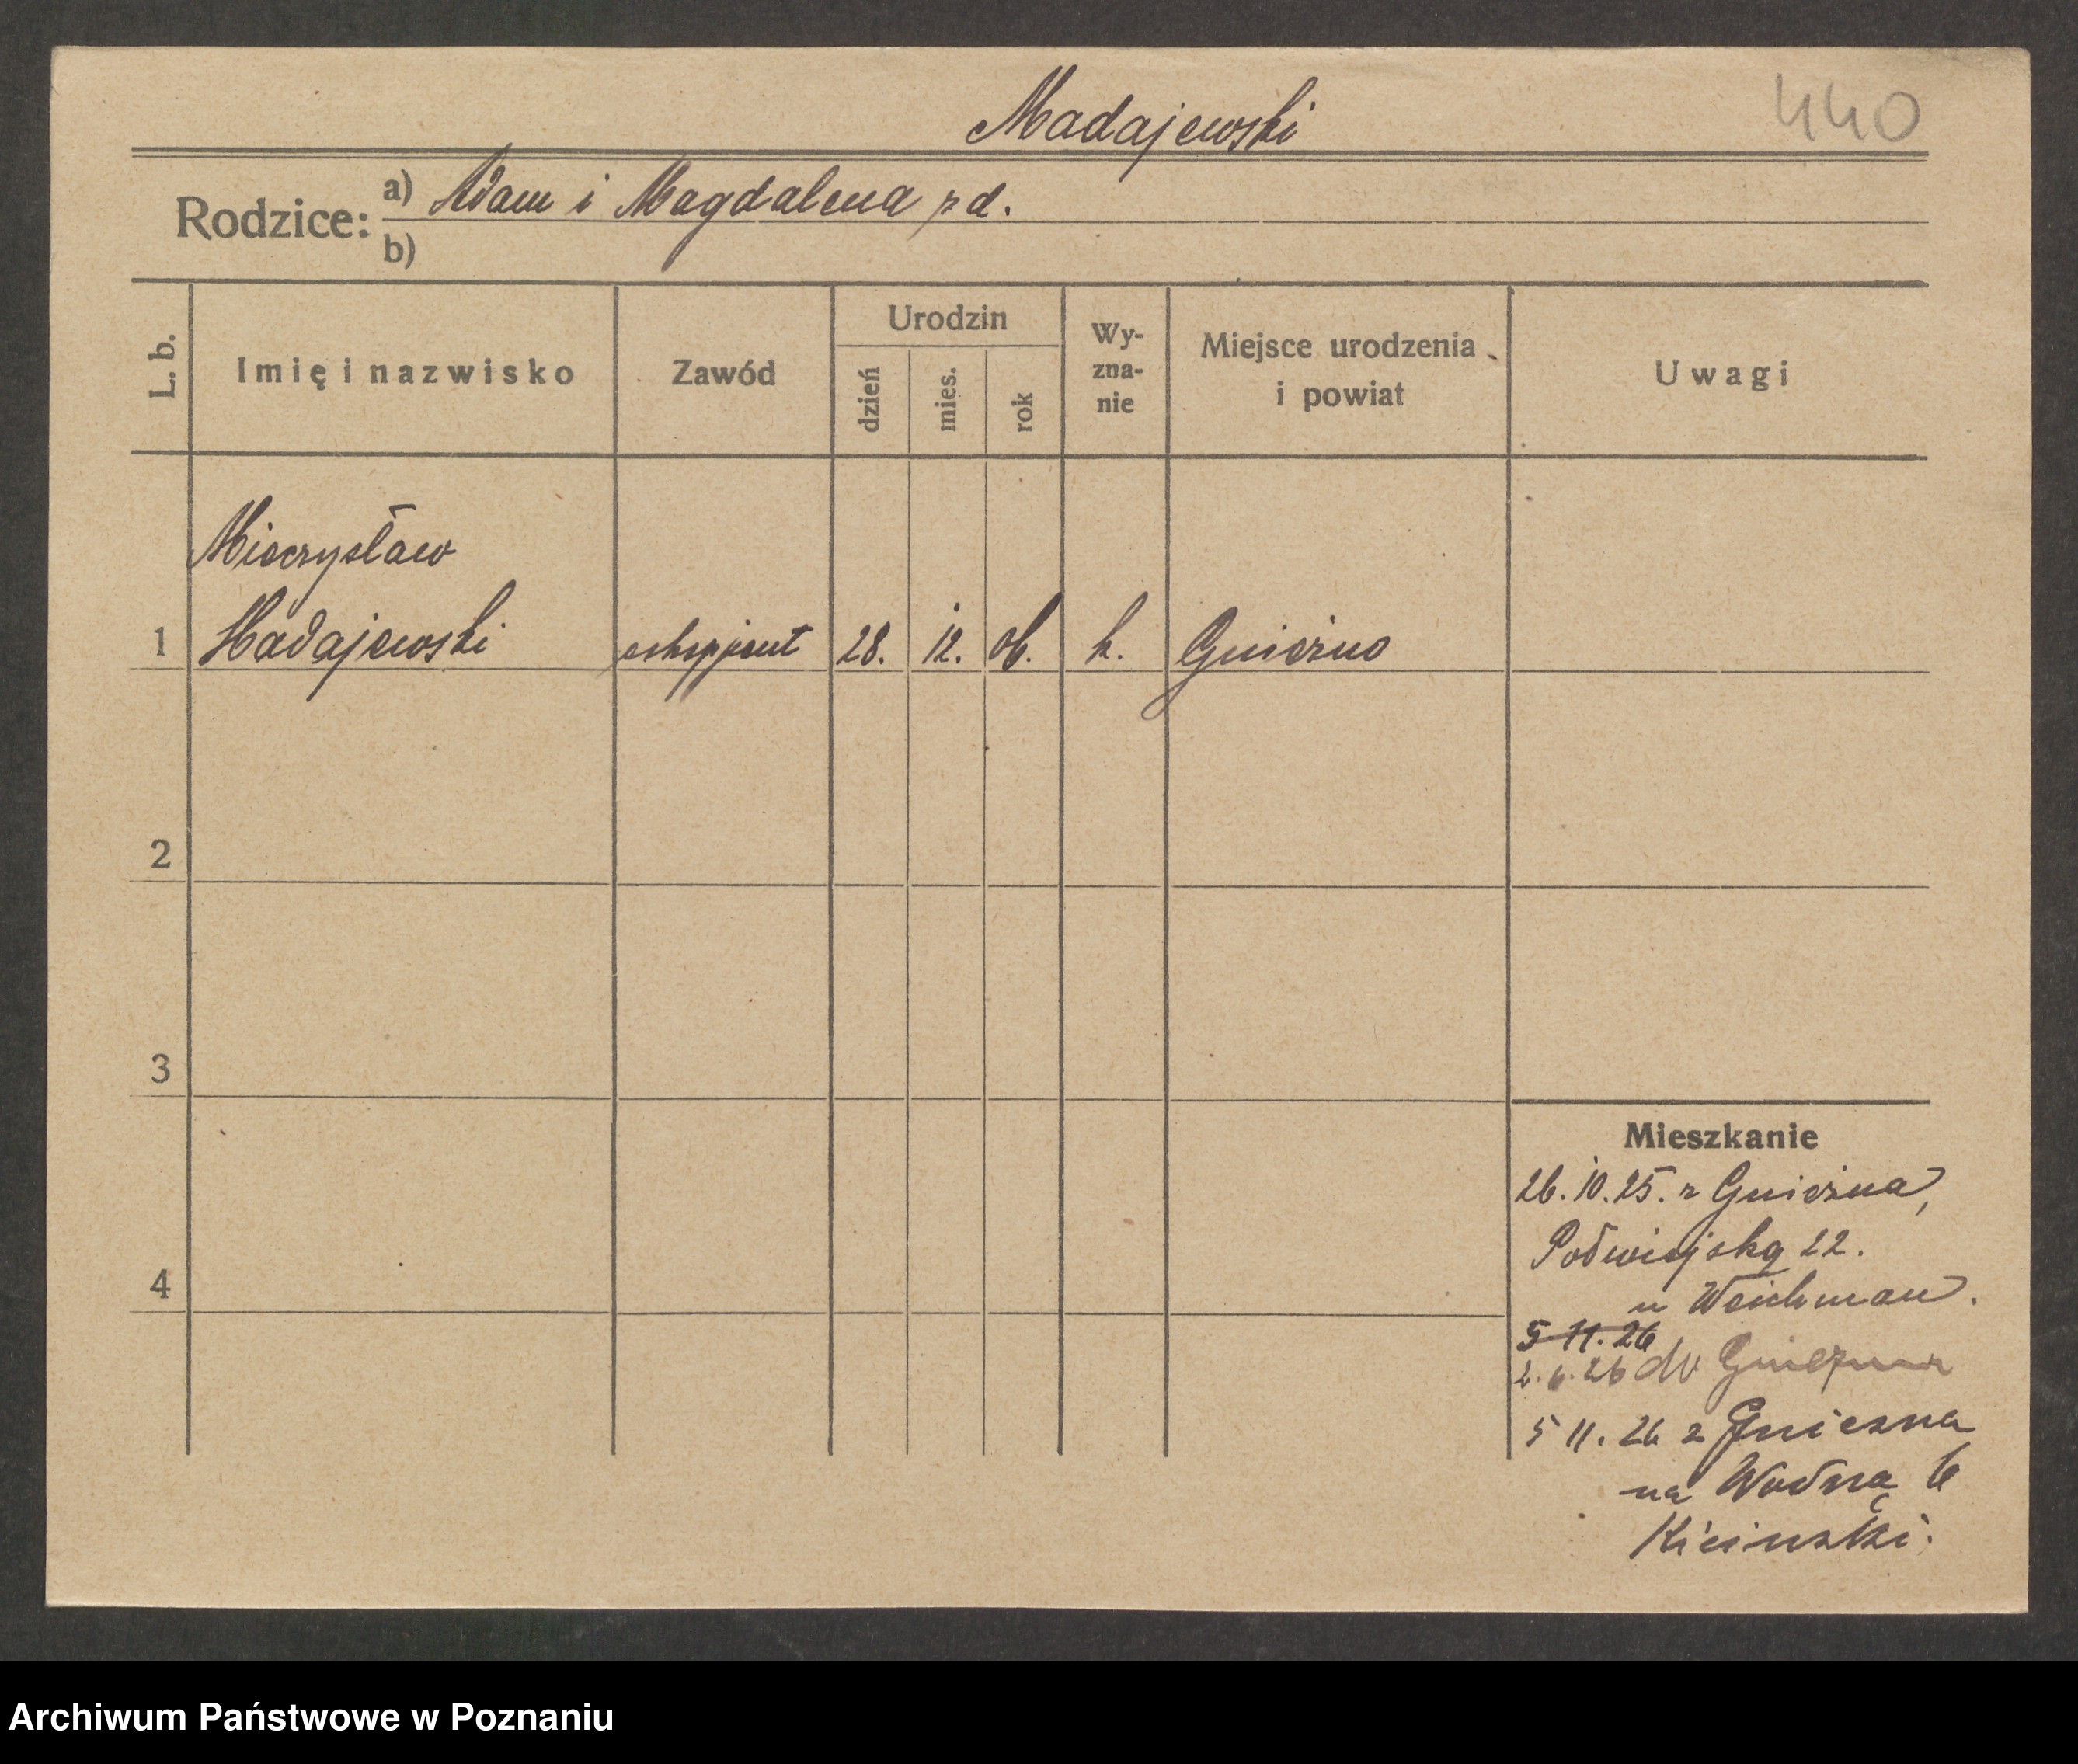 Madajewski
440
Rodzice: a) Adam i Magdalena zd.
b)
L. b.
Imię i nazwisko
Zawód
Urodzin
dzień
mies.
rok
Wy-
zna-
nie
Miejsce urodzenia
i powiat
Uwagi
Mieczysław
1 Madajewski ekspjent 28. 12. 06. k. Gniezno
2
3
4
Mieszkanie
26.10.25. z Gniezna,
Podwiejską 22.
u Weichman.
5 11. 26
2.6.26 do Gniezna
5 11. 26 z Gniezna
na Wodną 6
Kicinski.
Archiwum Państwowe w Poznaniu